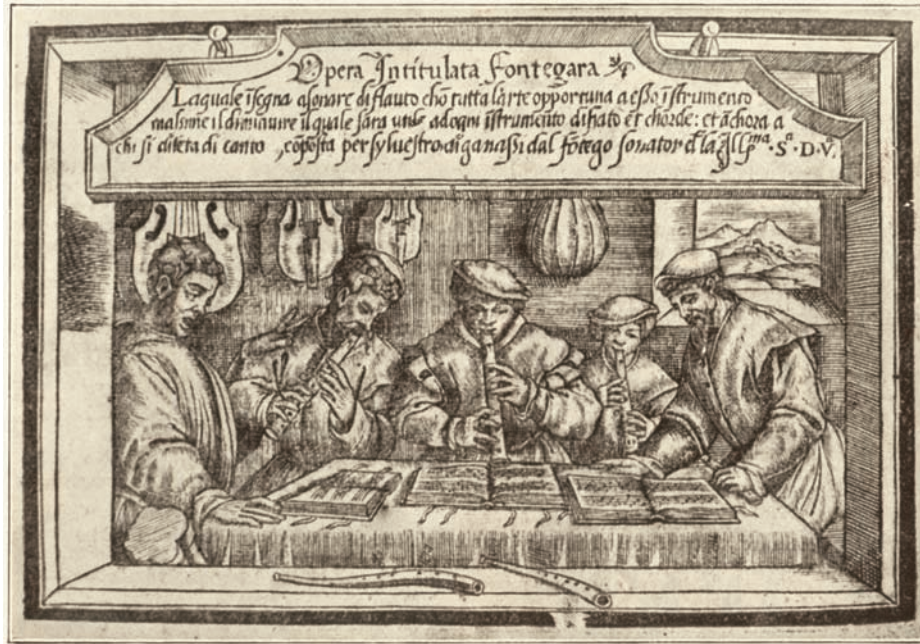 Opera Intitulata Fontegara
Laquale ĩsegna a sonare di flauto chõ tutta l'arte opportuna a esso ĩstrumento
massime il diminuire il quale sara utile ad ogni ĩstrumento di fiato et chorde: et ãchora a
chi si diletta di canto, cõposta per sylvestro di ganassi dal fõtego sonator d̃ la Ill.ma S.a D.V.